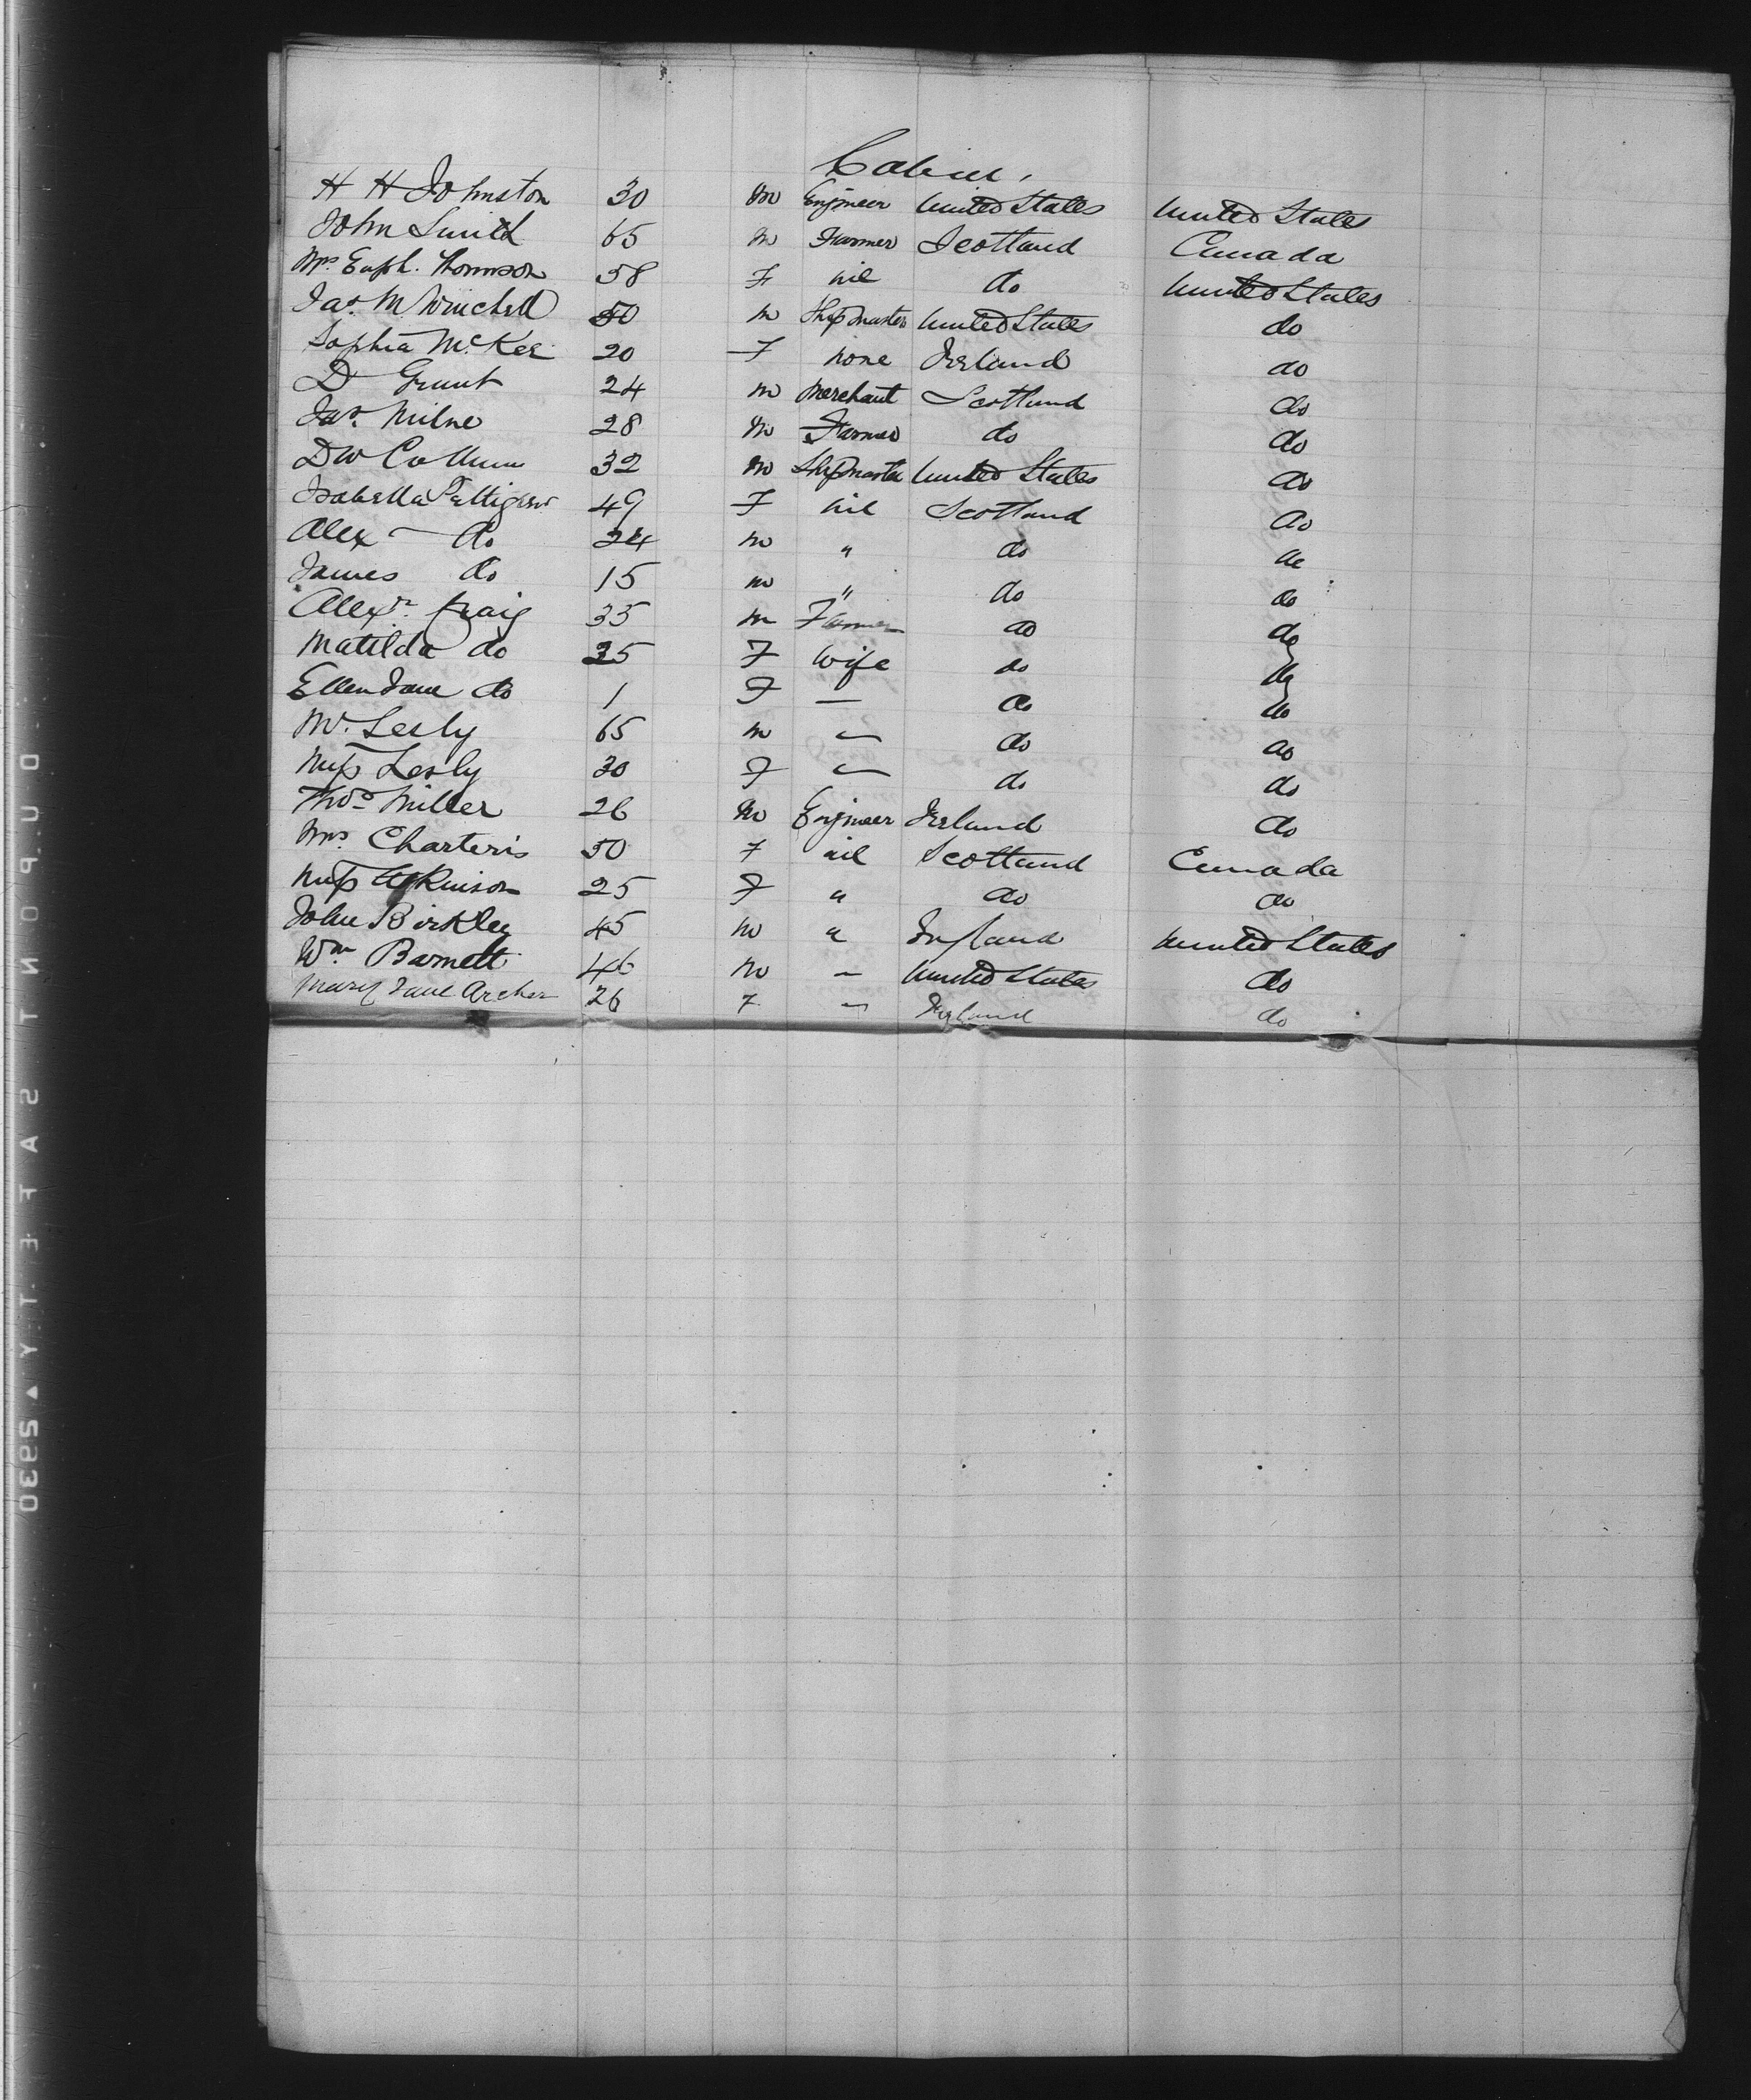 Cabin.
H H Johnston 30 m Engineer United States United States
John Smith 65 m Farmer Scotland Canada
Mrs Euph. Thomson 58 F nil do United States
Jas. M Winchell 50 m Shipmaster United States do
Sophia McKee 20 F none Ireland do
D Grant 24 m Merchant Scotland do
Jas. Milne 28 m Farmer do do
DW Collum 32 m Shipmaster United States do
Isabella Pettigrew 49 F nil Scotland do
Alex do 24 m " do do
James do 15 m " do do
Alexr. Craig 35 m Farmer do do
Matilda do 25 F Wife do do
Ellen Jane do 1 F — do do
Mr. Lesly 65 m — do do
Miss Lesly 30 F — do do
Thos Miller 26 m Engineer Ireland do
Mrs. Charteris 50 F nil Scotland Canada
Miss Atkinson 25 F " do do
John Birkley 45 m " England United States
Wm Barnett 46 m — United States do
Mary Jane Archer 26 F — Ireland do
DUPONT SAFETY ▲ 2930